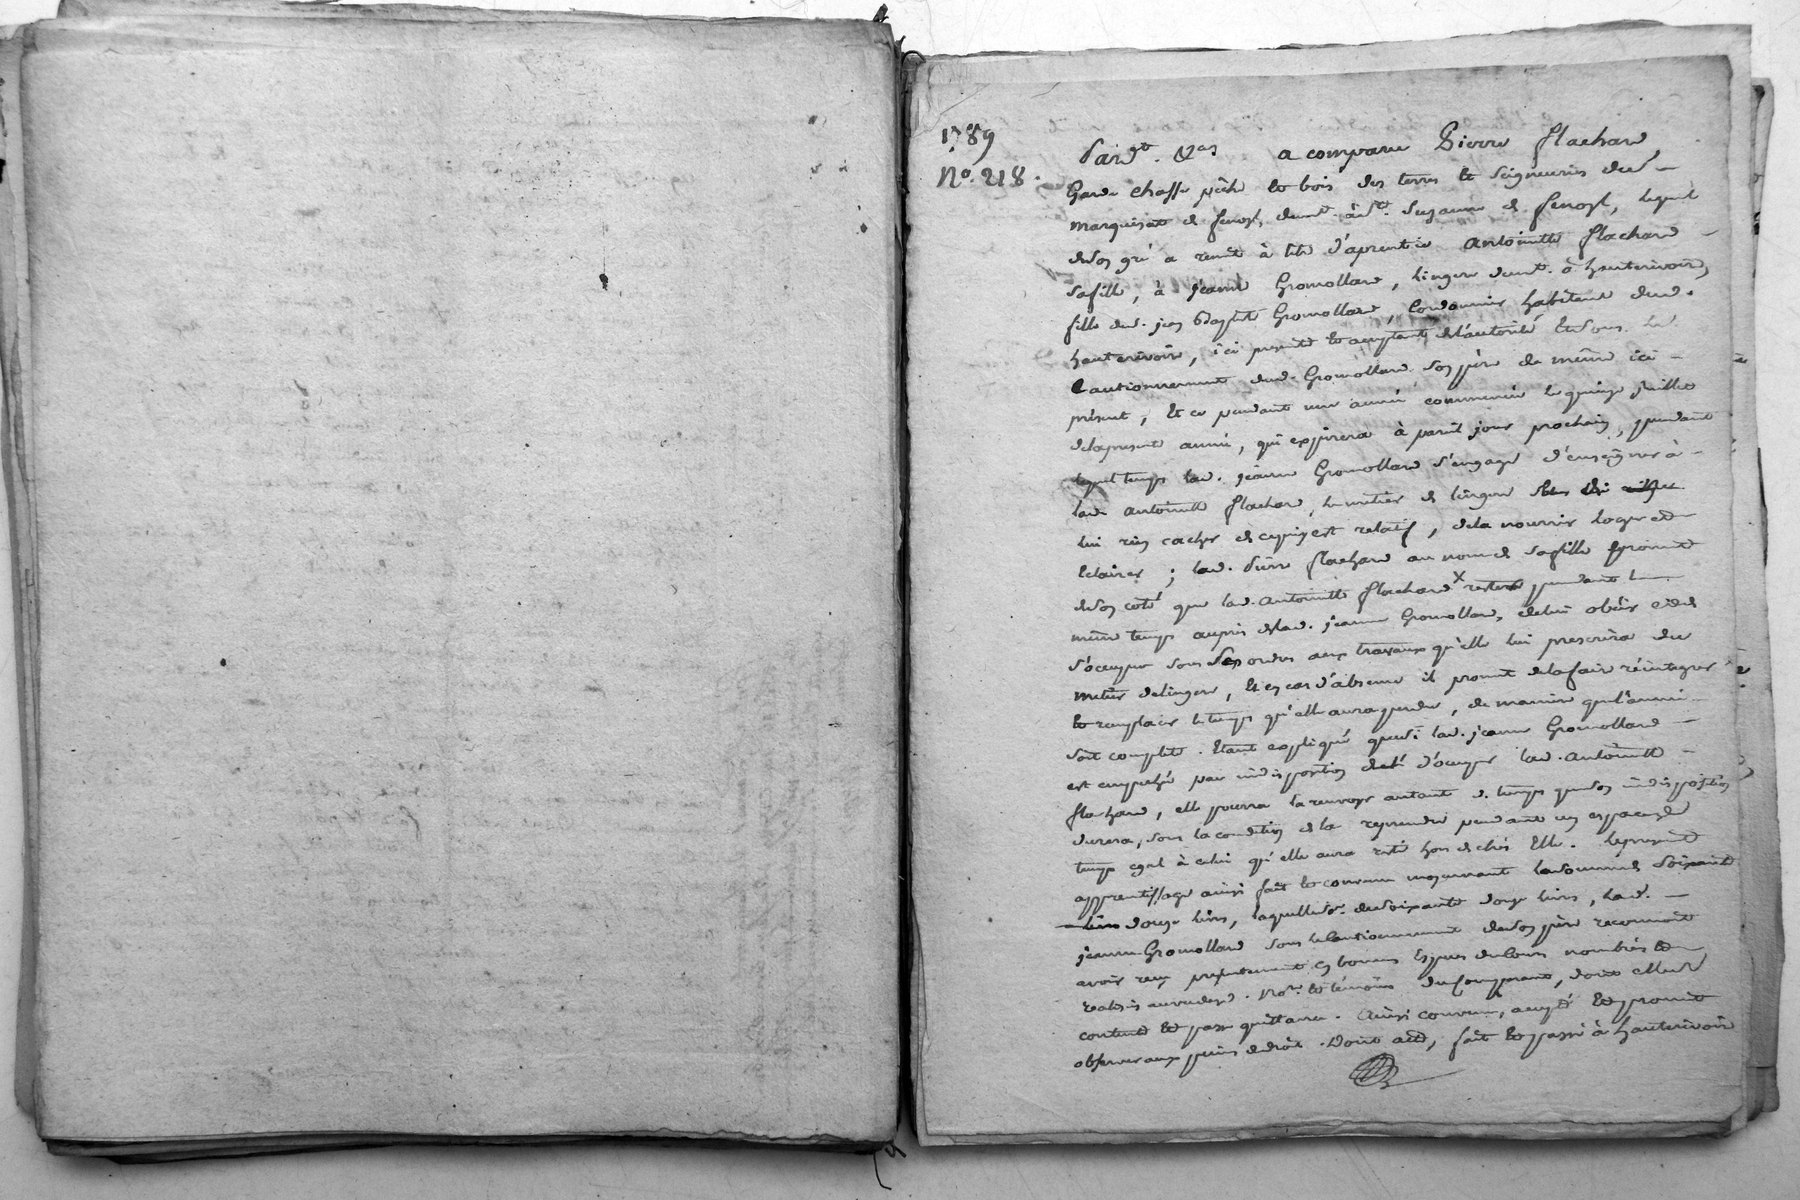 1789
No. 218.
Pardt. &as a comparu Pierre flachard
Garde chasse pêche et bois des terres et Seigneuries dud.
marquisat de fenoyl, demt. à St. Suzanne de fenoyl, lequel
de son gré a remit à titre d'aprentie Antoinette flachard
sa fille, à jeanne Gromollard, lingere demt. à hauterivoire,
fille de d. jean Baptiste Gromollard, Cordonnier habitant dud.
hauterivoire, ici presente et acceptante de l'autorité Et sous le
Cautionnement dud. Gromollard son père de même ici
présent, Et ce pendant une année commencée le quinze juillet
de la presente année, qui expirera à pareil jour prochain, pendant
lequel temps lad. jeanne Gromollard s'engage d'enseigner à
lad. antoinette flachard, le métier de lingere
lui rien cacher de ce qui y est relatif, de la nourrir loger et
Eclairer ; led. Pierre flachard au nom de sa fille promet
de son coté que lad. Antoinette flachard x restera pendant le
même temps auprès de lad. jeanne Gromollard, de lui obéir et de
s'occuper sous Ses ordres aux travaux qu'elle lui prescrira du
métier de lingere, Et en cas d'absence il promet de la faire réintegrer
et remplacer le temps qu'elle aura perdu, de maniere que l'année
soit complete. Etant expliqué que si lad. jeanne Gromollard
est empechée par indisposition d'occuper lad. Antoinette
flachard, elle pourra la renvoyer autant de temps que son indisposition
durera, sous la condition de la reprendre pendant un espace de
temps egal à celui qu'elle aura resté hors de chés Elle. le présent
apprentissage ainsi fait et convenu moyennant la somme de soixante
livres douze livres, laquelle de. de soixante douze livres, lad.
jeanne Gromollard sous le Cautionnement de son père reconnoit
avoir reçu présentement en bonnes Espèces de cours nombrées et
réalisées au vu de nd. Nore. et témoins du Comparant, dont elle est
contente et passe quittance. Ainsi convenu, accepté et promit
observer aux peines de droit. Dont acte, fait et passé à hauterivoire